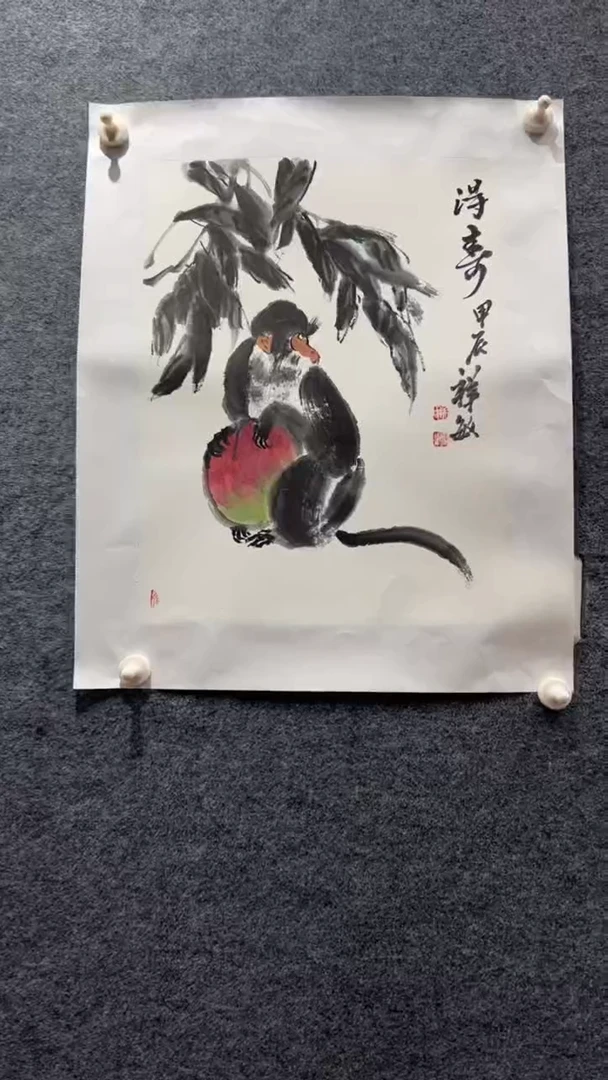 得寿
甲辰祥敏